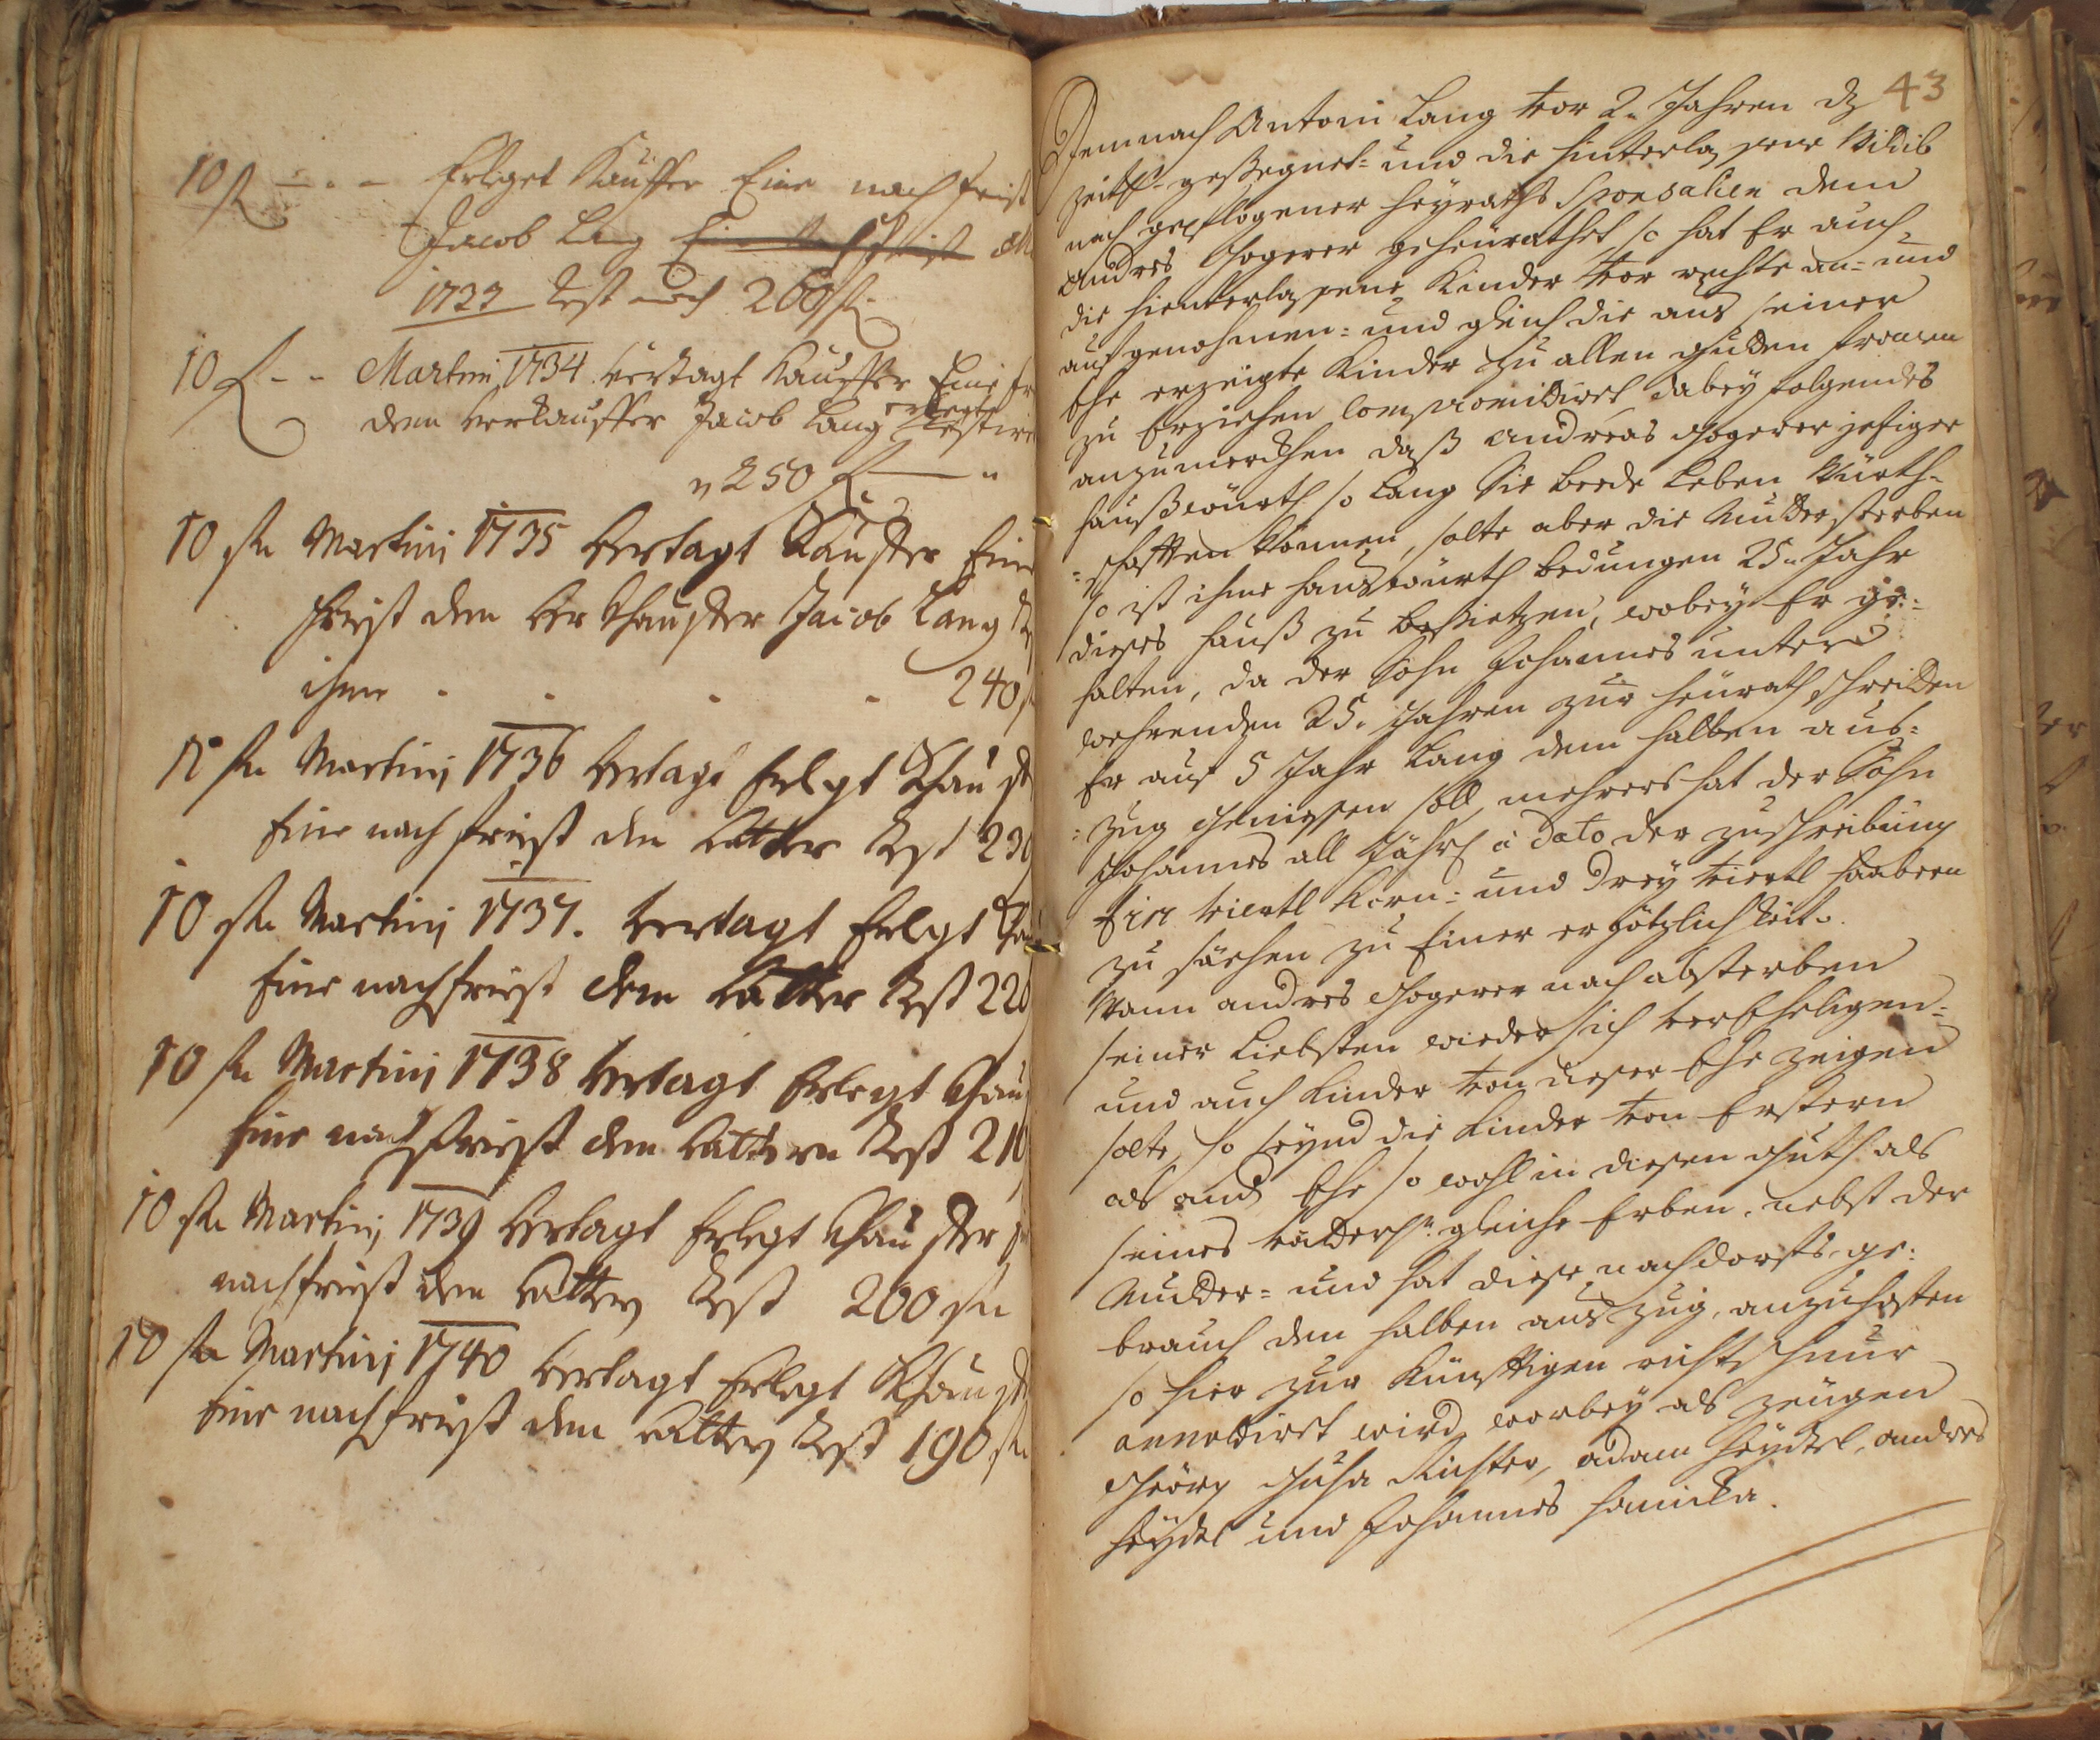 10 fl – . – Erleget Kauffer Eine nachfrist
Jacob Lang Eine Nachfrist
1733 Rest noch 260 fl.
10 fl - - Martini 1734 vertagt Kauffer Eine fr
dem Verkauffer Jacob Lang erlegt Restire
„ 250 fl — "
10 fl Martinj 1735 Vertagt Kauffer Eine
frist dem Verkhauffer Jacob Lang
ihme . . . . 240 f
10 fl Martinj 1736 Vertagt Erlegt Khauff
Eine nachfrist dem Vatter Rest 230
10 fl Martinj 1737. Vertagt Erlegt Kha
Eine nachfrist dem Vatter Rest 220
10 fl Martinj 1738 Vertagt Erlegt Khau
Eine nachfrist dem Vattern Rest 210
10 fl Martinj 1739 Vertagt Erlegt Khauffer
nachfrist dem Vatter Rest 200 fl
10 fl Martinj 1740 Vertagt Erlegt Khauff
Eine nachfrist dem Vatter Rest 190 fl
43
Demnach Antoni Lang vor 2. Jahren dz
zeitl. gesegnet= und die hinterlassene Wittib
nach gepflogener heyraths Sponsalien dem
Andres geheürathet, so hat Er auch
die hinterlassene Kinder vor rechte an= und
aufgenohmen= und gleich die aus seiner
Ehe erzeigte Kinder zu allen gutten fromen
zu Erziehen Compromittirt dabey folgendes
anzumerckhen daß Andreas jetziger
haußwürth so lang Sie beede leben Würth=
=schafften können, solte aber die Mutter sterben
so ist ihme hauswürth bedungen 25. Jahr
dieses hauß zu besietzen, wobey Er ge=
halten, da der Sohn Johannes unter
wehrenden 25. Jahren zur heürath schreitten
Er auf 5 Jahr lang dem halben aus=
=zug geniessen soll, mehrers hat der Sohn
Johannes all Jährl. à Dato der zuschreibung
Ein viertl Korn= und Drey viertl haabern
zu säehen zu Einer ergötzlichkeit.
Wann andres nach absterben
seiner Liebsten wieder sich verEheligen=
und auch Kinder von dieser Ehe zeigen
solte, so seynd die Kinder von Erstern
als and. Ehe so wohl in diesen guth als
seines vätterl. gleiche Erben, nebst der
Mutter= und hat diese nach dorfs ge=
brauch den halben auszug, anzuhoffen
so hier zur Künfftigen richtschnur
annotirt wird, worbey als zeügen
Geörg Richter, adam heydtl, andres
heydtl und Johannes hanicka.